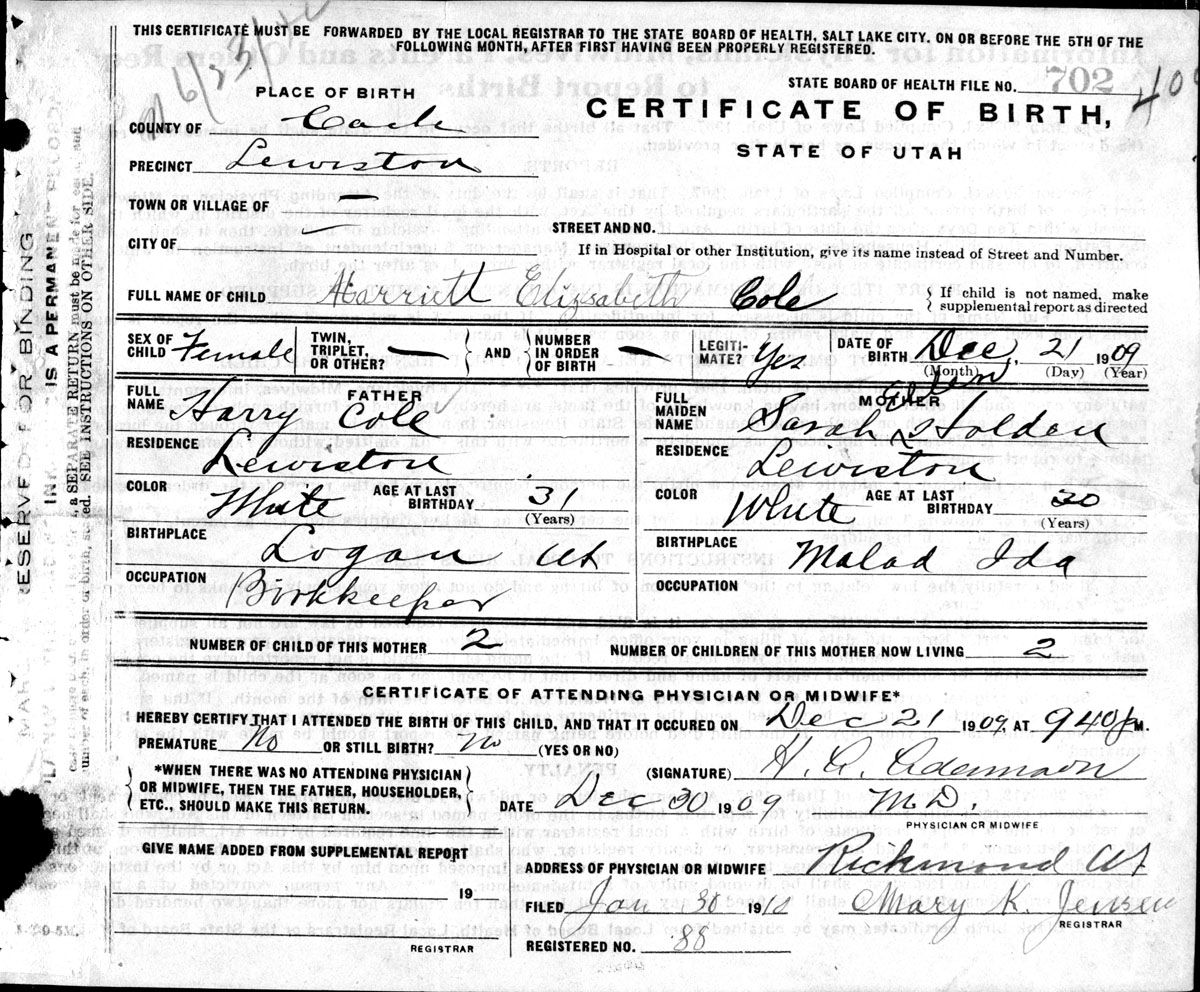 THIS CERTIFICATE MUST BE FORWARDED BY THE LOCAL REGISTRAR TO THE STATE BOARD OF HEALTH, SALT LAKE CITY. ON OR BEFORE THE 5TH OF THE
FOLLOWING MONTH, AFTER FIRST HAVING BEEN PROPERLY REGISTERED.
STATE BOARD OF HEALTH FILE NO. 702
409
PLACE OF BIRTH
CERTIFICATE OF BIRTH,
STATE OF UTAH
COUNTY OF Cache
PRECINCT Lewiston
TOWN OR VILLAGE OF —
STREET AND NO.
CITY OF
If in Hospital or other Institution, give its name instead of Street and Number.
FULL NAME OF CHILD Harriett Elizabeth Cole { If child is not named, make
supplemental report as directed
SEX OF CHILD Female TWIN, TRIPLET, OR OTHER? — { AND } NUMBER IN ORDER OF BIRTH LEGITI- MATE? Yes DATE OF BIRTH Dec, 21 1909
(Month) (Day) (Year)
FATHER
FULL NAME Harry Cole
RESIDENCE Lewiston
COLOR White AGE AT LAST BIRTHDAY 31
(Years)
BIRTHPLACE Logan Ut
OCCUPATION Bookkeeper
MOTHER
FULL MAIDEN NAME Sarah Holden
RESIDENCE Lewiston
COLOR White AGE AT LAST BIRTHDAY 30
(Years)
BIRTHPLACE Malad Ida
OCCUPATION
NUMBER OF CHILD OF THIS MOTHER 2 NUMBER OF CHILDREN OF THIS MOTHER NOW LIVING 2
CERTIFICATE OF ATTENDING PHYSICIAN OR MIDWIFE*
I HEREBY CERTIFY THAT I ATTENDED THE BIRTH OF THIS CHILD, AND THAT IT OCCURRED ON Dec 21 1909, AT 940 P M.
PREMATURE No OR STILL BIRTH? No (YES OR NO)
*WHEN THERE WAS NO ATTENDING PHYSICIAN
OR MIDWIFE, THEN THE FATHER, HOUSEHOLDER,
ETC., SHOULD MAKE THIS RETURN.
(SIGNATURE) H. A. Adamson
DATE Dec 30 1909 M.D.
PHYSICIAN OR MIDWIFE
GIVE NAME ADDED FROM SUPPLEMENTAL REPORT
19
REGISTRAR
ADDRESS OF PHYSICIAN OR MIDWIFE Richmond Ut
FILED Jan 30 1910 Mary K. Jensen
REGISTRAR
REGISTERED NO. 88
IS A PERMANENT RECORD
a SEPARATE RETURN must be made for
SEE INSTRUCTIONS ON OTHER SIDE.